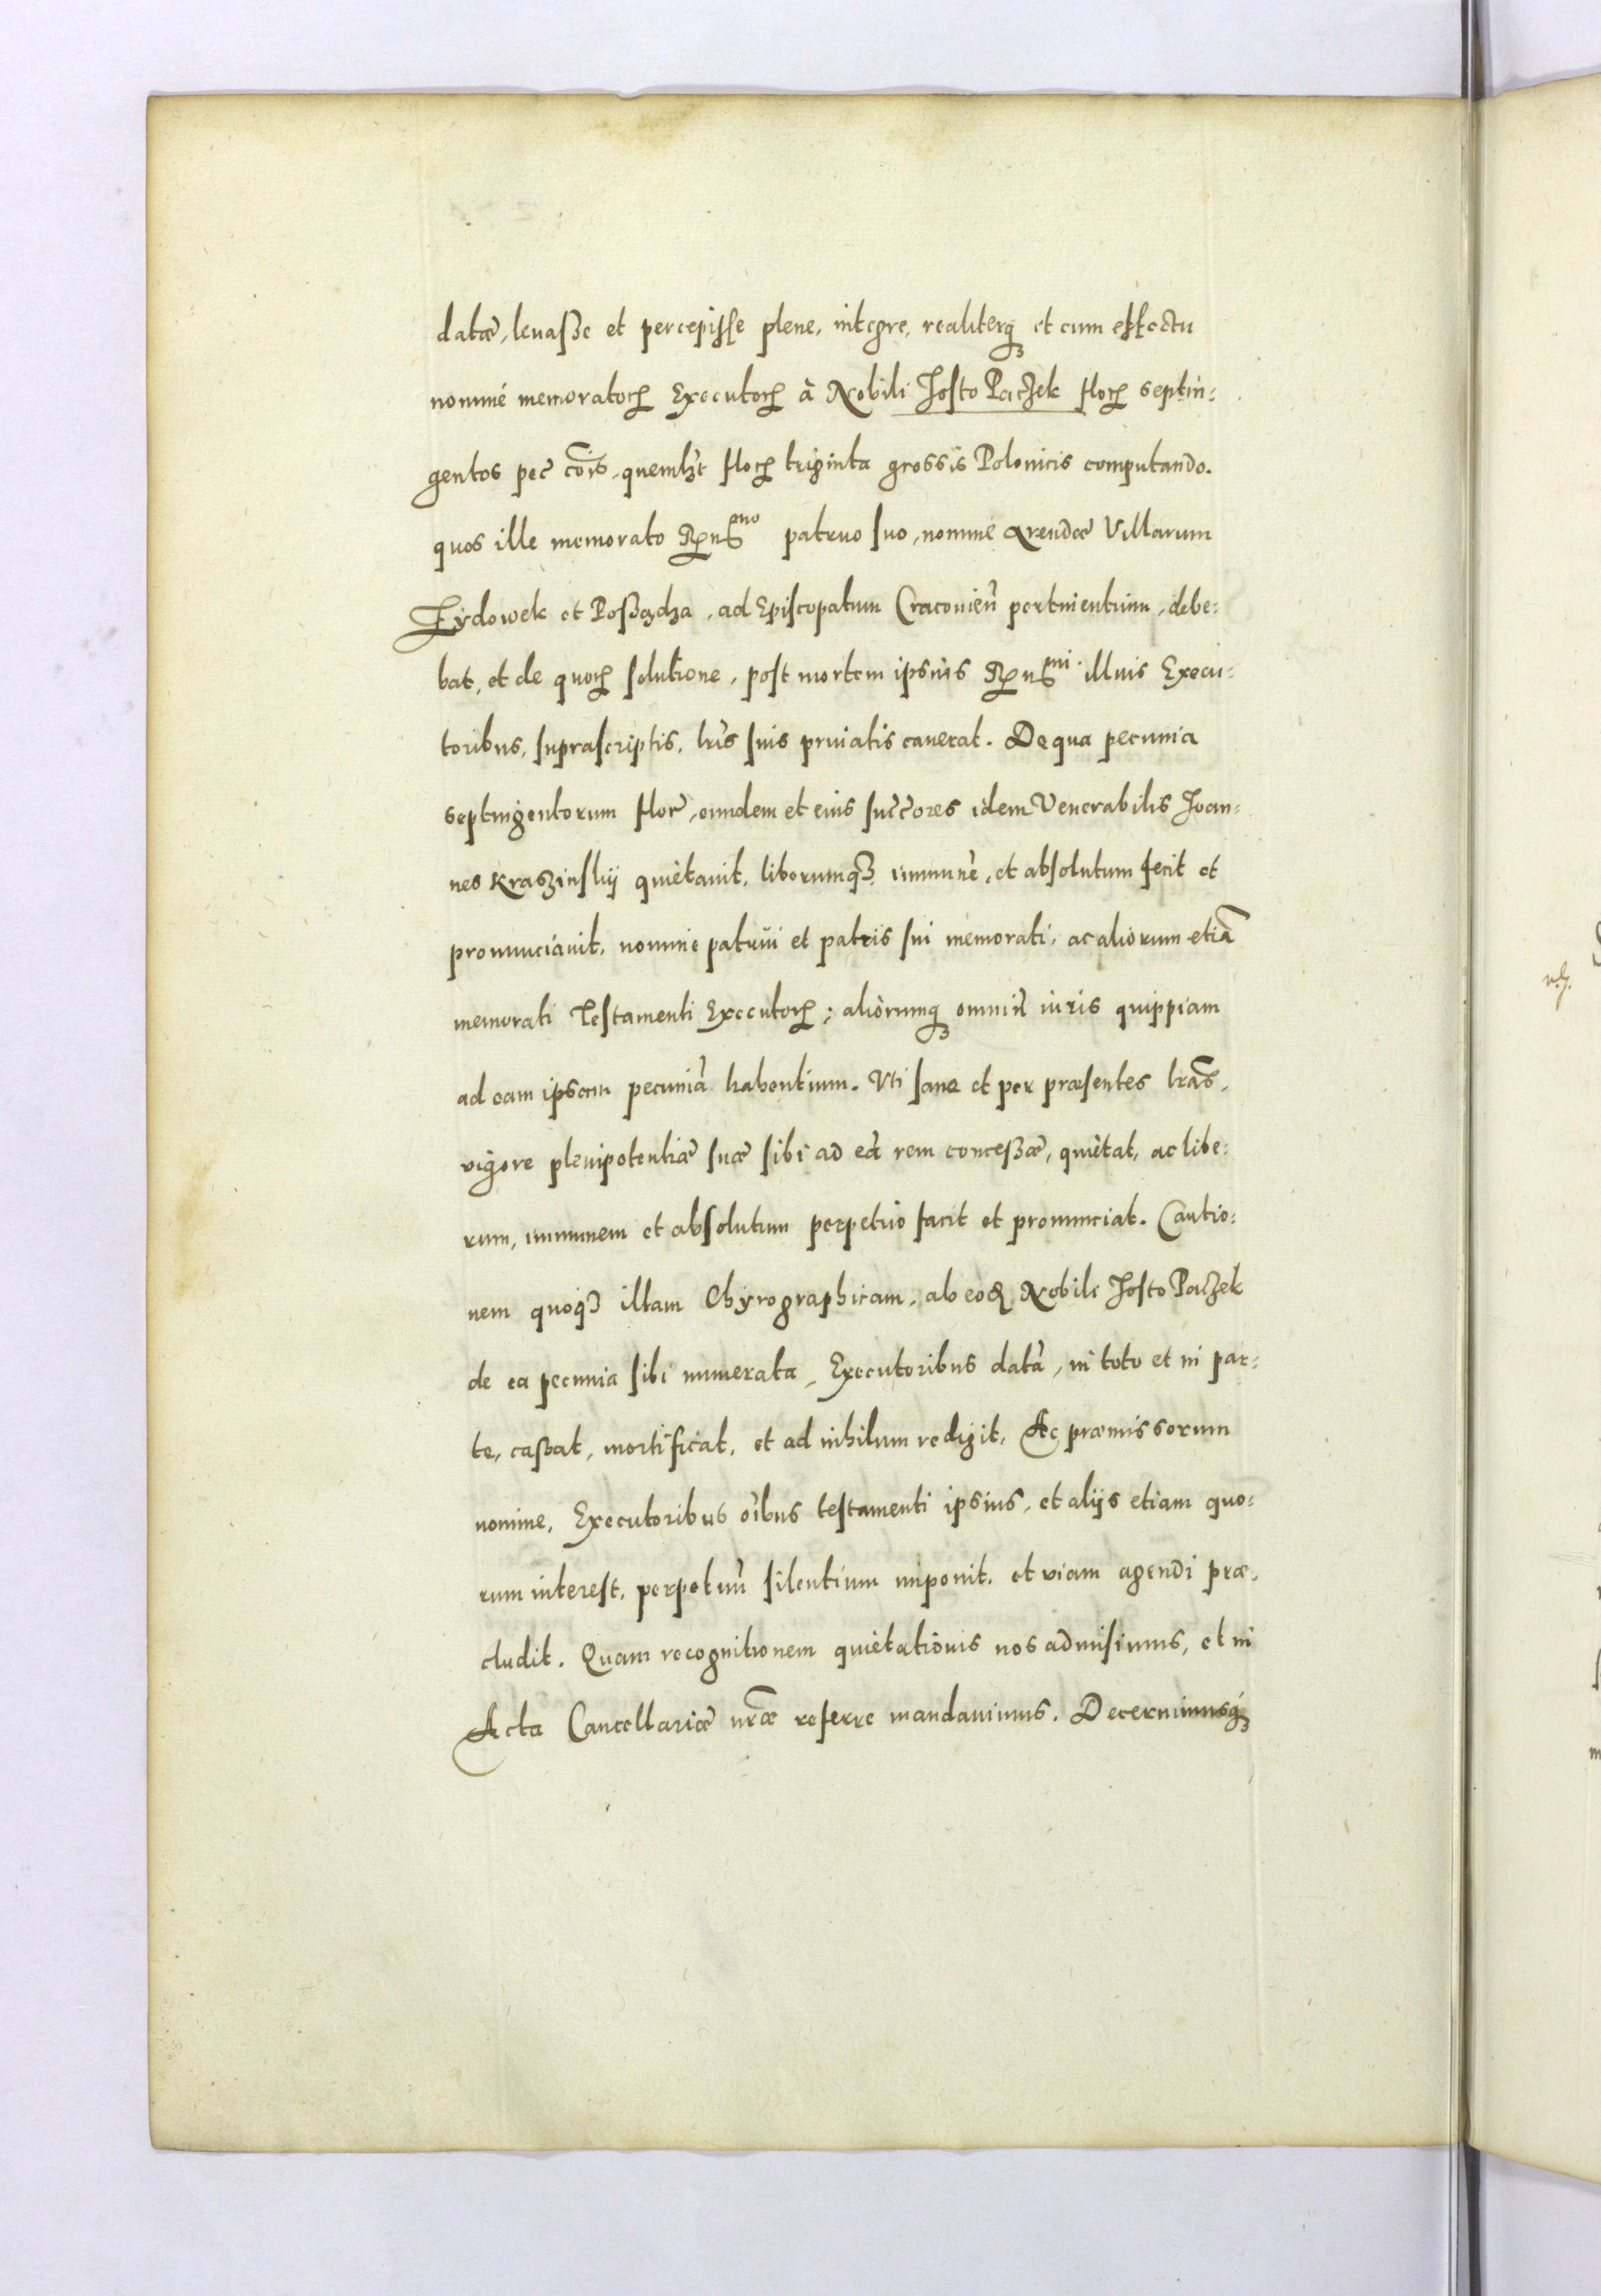 datæ, leuaße et percepiſſe plene, integre, realiterqȝ et cum effectu
nomine memoratoꝝ Executoꝝ à Nobili Josto Paczek floꝝ septin:
gentos pec̃ cõis, quemlȝt floꝝ triginta grossis Polonicis computando.
quos ille memorato Rñdmo patruo suo, nomine Arendæ Villarum
Zydowek et Poßadza, ad Episcopatum Cracouieñ pertinentium, debe:
bat, et de quoꝝ solutione, post mortem ipsius Rñdmi illius Execu:
toribus, suprascriptis, lrĩs suis priuatis cauerat. De qua pecunia
septingentorum flor̃, eundem et eius succ̃ores idem Venerabilis Joan:
nes Kraszinskij quietauit, liberumqȝ immunẽ, et absolutum fecit et
pronunciauit, nomine patrui et patris sui memorati, ac aliorum etiã
memorati Testamenti Executoꝝ; aliorumqȝ omniũ iuris quippiam
ad eam ipsam pecuniã habentium. Uti sane et per præsentes lrãs,
vigore plenipotentiæ suæ sibi ad eã rem conceßæ, quietat, ac libe:
rum, immunem et absolutum perpetuo facit et pronunciat. Cautio:
nem quoqȝ illam Chyrographicam, ab eoď Nobili Josto Paczek
de ea pecunia sibi numerata, Executoribus datã, in toto et in par:
te, caßat, mortificat, et ad nihilum redigit, Ac præmissorum
nomine, Executoribus oĩbus testamenti ipsius, et alijs etiam quo:
rum interest, perpetuũ silentium imponit, et viam agendi præ:
cludit. Quam recognitionem quietationis nos admisimus, et in
Acta Cancellariæ nr̃æ referre mandauimus. Decernimusqȝ